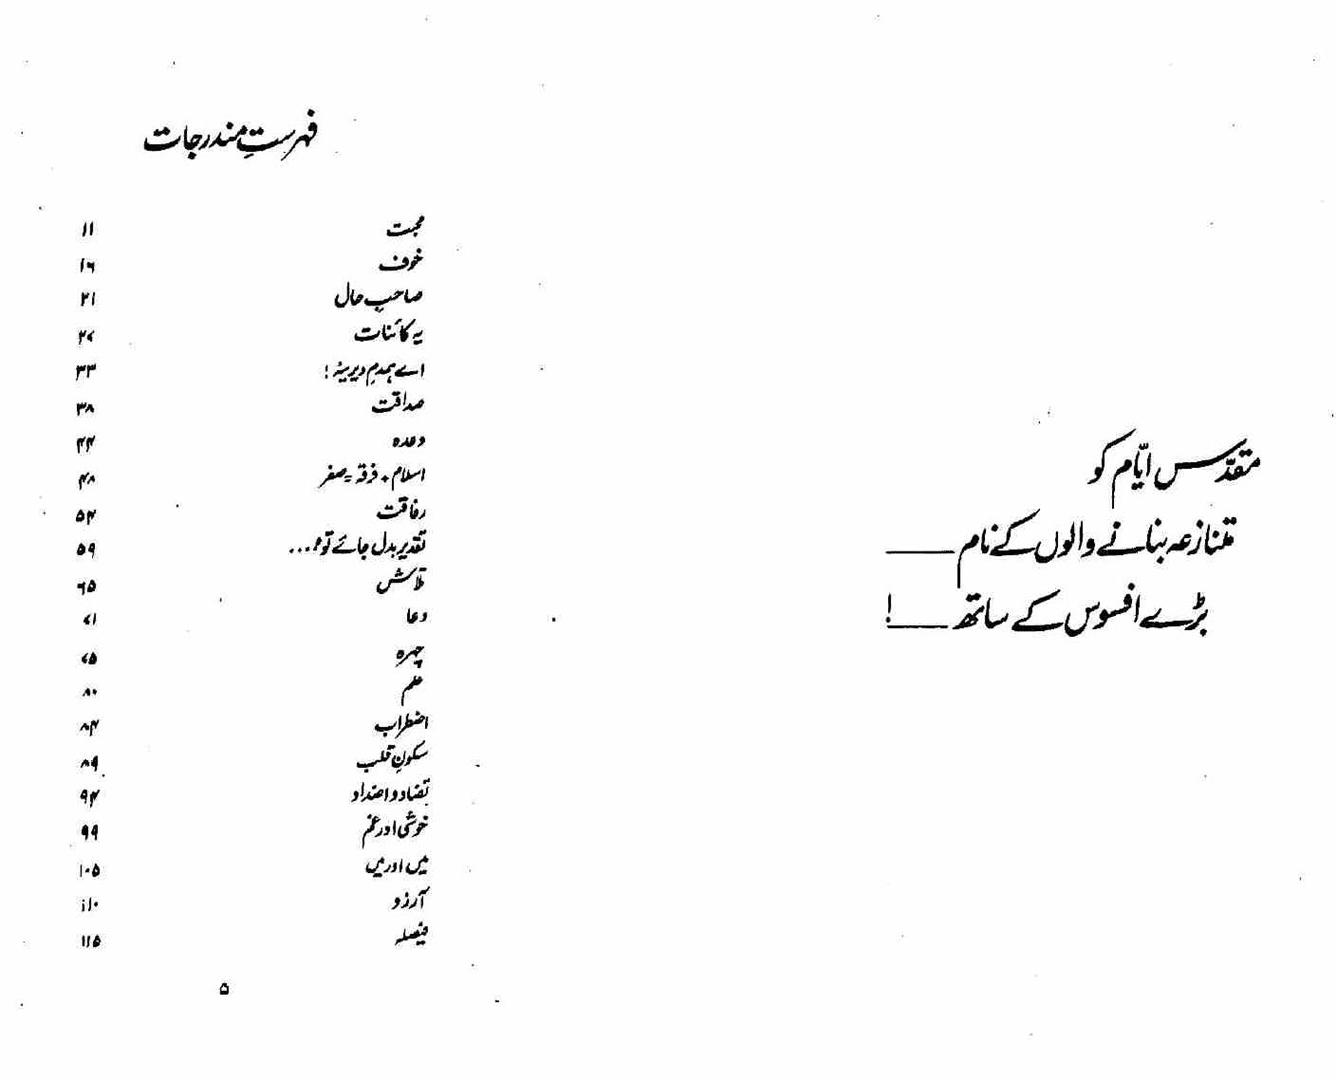 مقدّس ایّام کو
متنازعہ بنانے والوں کے نام ــــــ
بڑے افسوس کے ساتھ ــــــ!
فہرستِ مندرجات
محبت ۱۱
خوف ۱۶
صاحبِ حال ۲۱
یہ کائنات ۲۷
اے ہمدمِ دیرینہ! ۳۳
صداقت ۳۸
وعدہ ۴۴
اسلام + فرقہ = صفر ۴۸
رفاقت ۵۴
تقدیر بدل جائے تو؟... ۵۹
تلاش ۶۵
دعا ۷۱
چہرہ ۷۵
علم ۸۰
اضطراب ۸۴
سکونِ قلب ۸۹
تضاد و اضداد ۹۴
خوشی اور غم ۹۹
میں اور میں ۱۰۵
آرزو ۱۱۰
فیصلہ ۱۱۵
۵